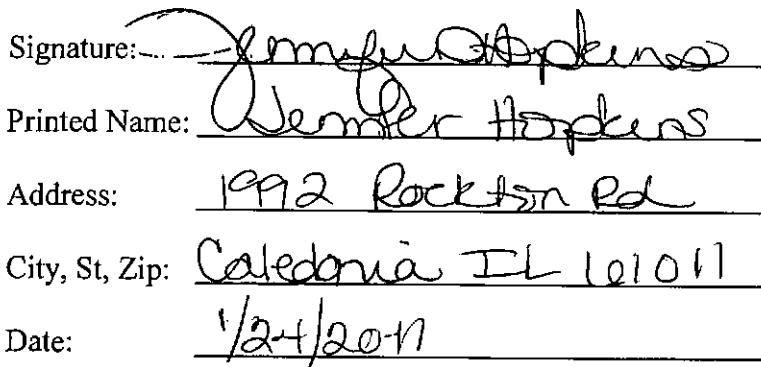 Signature: Jennifer Hopkins
Printed Name: Jennifer Hopkins
Address: 1992 Rockton Rd
City, St, Zip: Caledonia IL 61011
Date: 1/24/2017